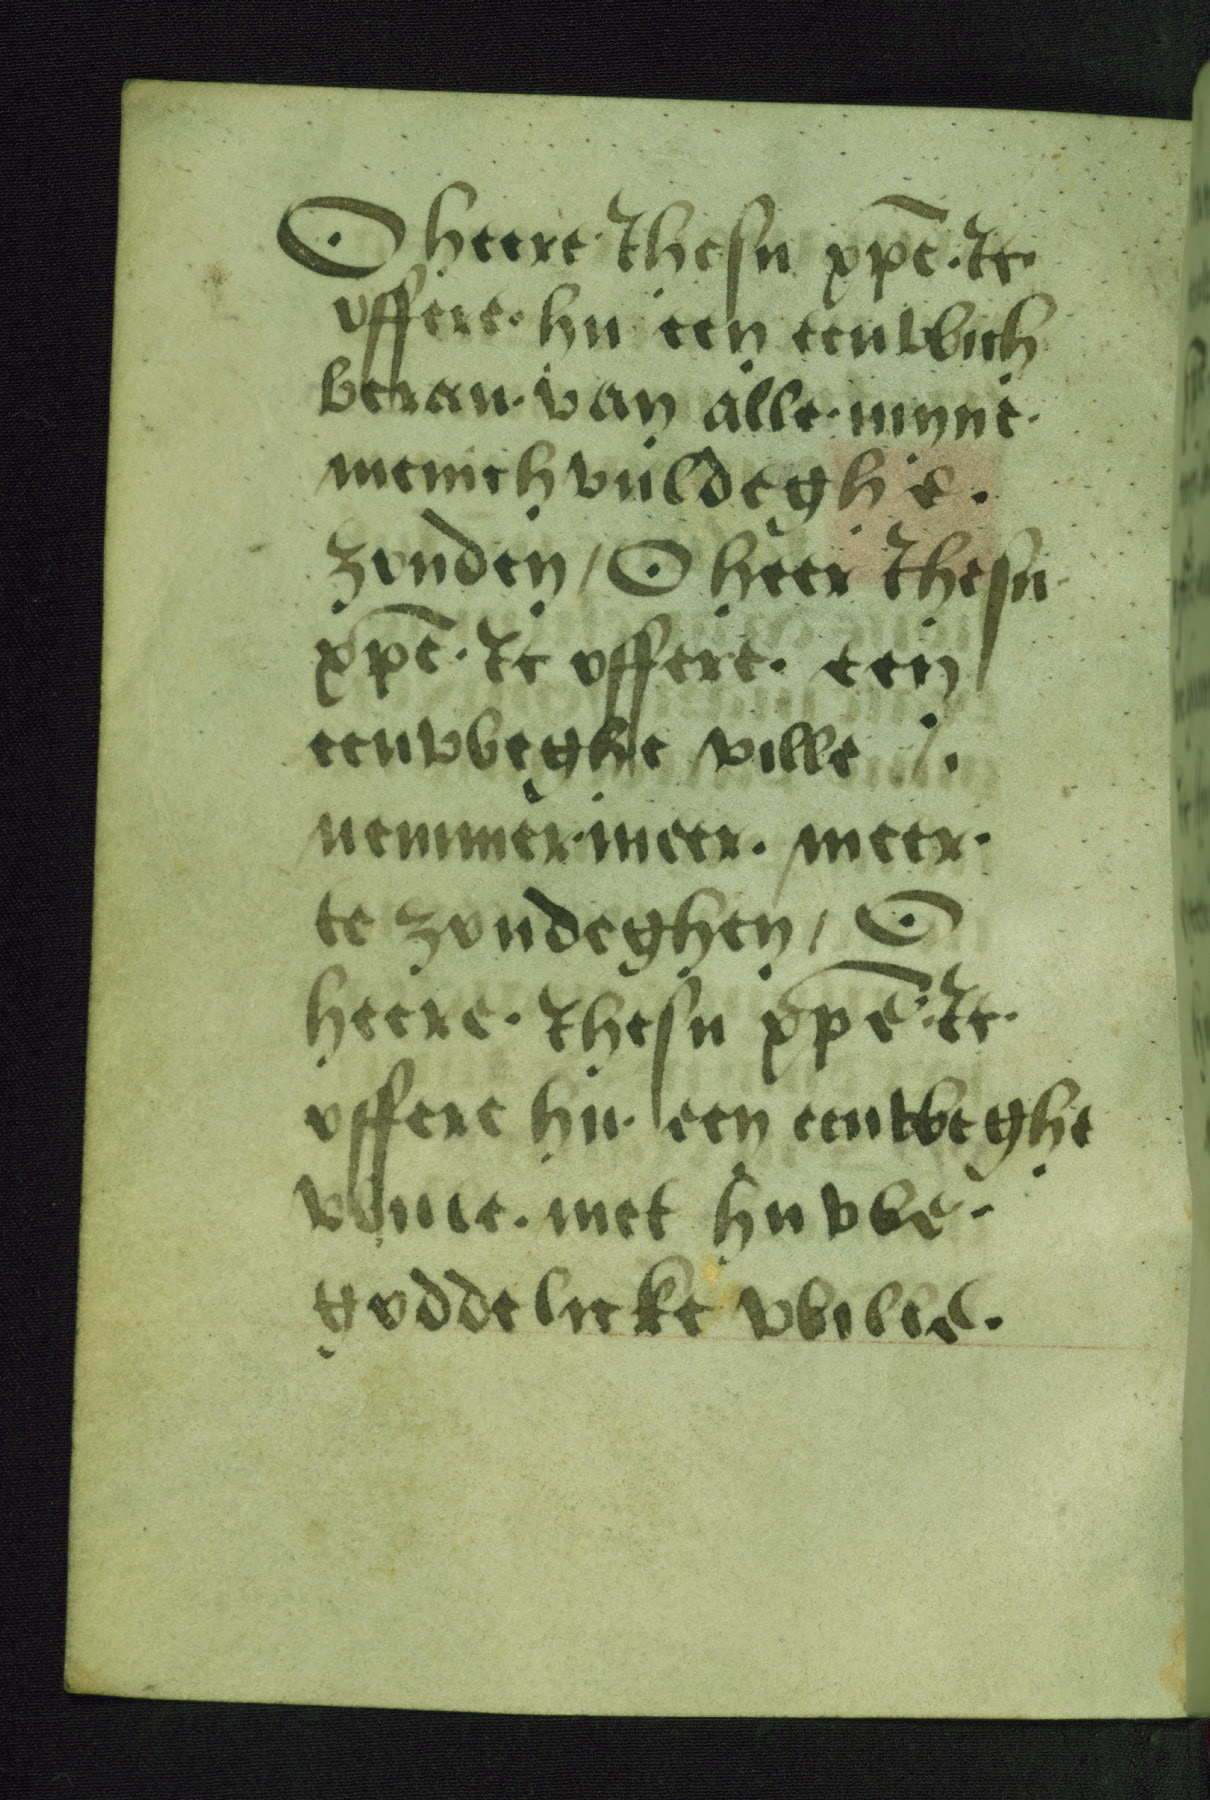 O heere · Ihesu xpē · Ic
offere · hu een eeuwich
berau · van alle · mijne ·
menichvuldeghe ·
zonden / O heer Ihesu
xpē · Ic offere · een
eeuweghe wille / ·
nemmermeer · meer ·
te zondeghen / O
heere · Ihesu xpē · Ic ·
offere hu · een eeuweghe
met huwe ·
goddelicke wille ·